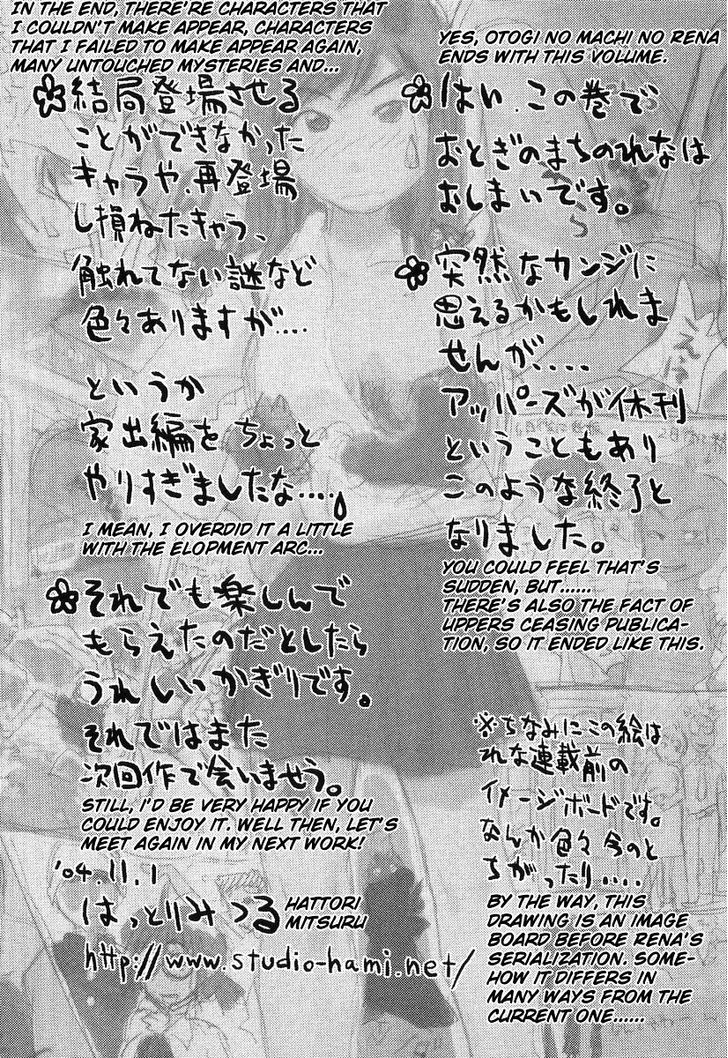 YES, OTOGI NO MACHI NO RENA
ENDS WITH THIS VOLUME.
はい、この巻で
おとぎのまちのれなは
おしまいです。
突然なカンジに
思えるかもしれま
せんが....
アッパーズが休刊
ということもあり
このような終了と
なりました。
YOU COULD FEEL THAT'S
SUDDEN, BUT......
THERE'S ALSO THE FACT OF
UPPERS CEASING PUBLICA-
TION, SO IT ENDED LIKE THIS.
※ちなみにこの絵は
れな連載前の
イメージボードです。
なんか色々今のと
ちがったり....
BY THE WAY, THIS
DRAWING IS AN IMAGE
BOARD BEFORE RENA'S
SERIALIZATION. SOME-
HOW IT DIFFERS IN
MANY WAYS FROM THE
CURRENT ONE......
IN THE END, THERE'RE CHARACTERS THAT
I COULDN'T MAKE APPEAR, CHARACTERS
THAT I FAILED TO MAKE APPEAR AGAIN,
MANY UNTOUCHED MYSTERIES AND...
結局登場させる
ことができなかった
キャラや、再登場
し損ねたキャラ、
触れてない謎など
色々ありますが....
というか
家出編をちょっと
やりすぎましたな....
I MEAN, I OVERDID IT A LITTLE
WITH THE ELOPMENT ARC...
それでも楽しんで
もらえたのだとしたら
うれしいかぎりです。
それではまた
次回作で会いませう。
STILL, I'D BE VERY HAPPY IF YOU
COULD ENJOY IT. WELL THEN, LET'S
MEET AGAIN IN MY NEXT WORK!
'04.11.1
はっとりみつる HATTORI
MITSURU
http://www.studio-hami.net/